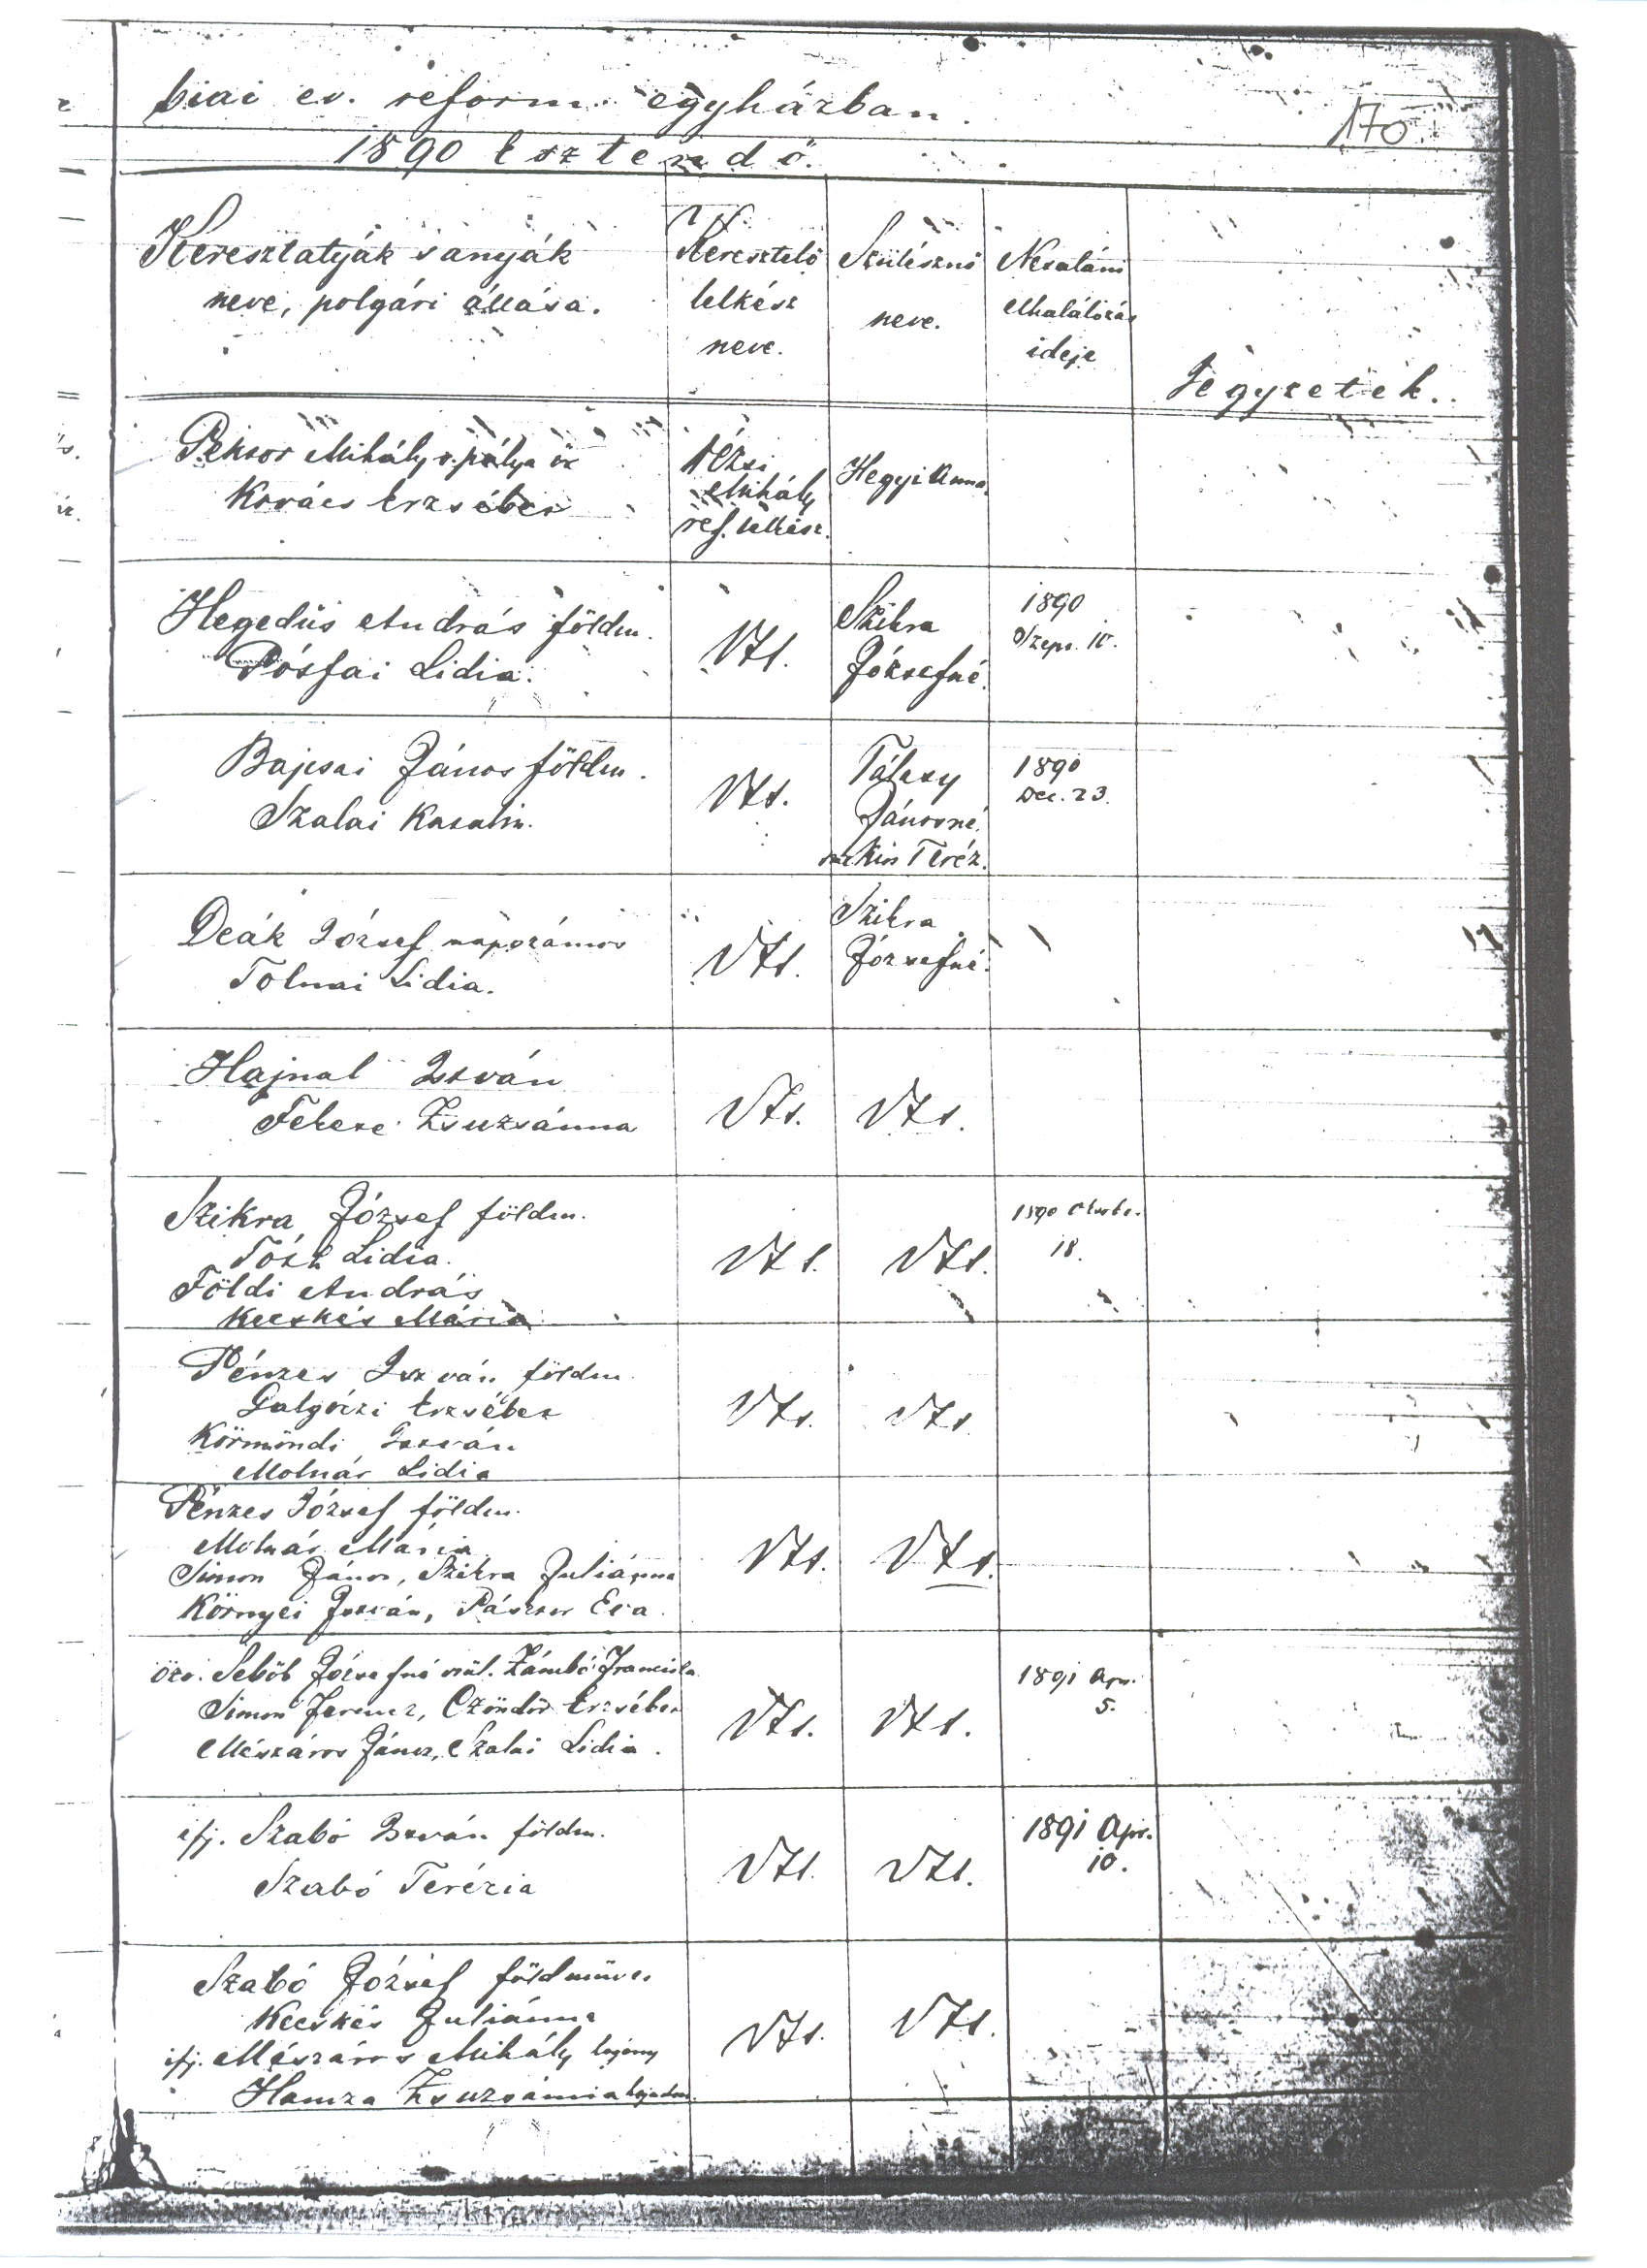 biai ev. reform. egyházban.
170.
1890 Esztendő.
Keresztatyák s anyák
neve, polgári állása.
Keresztelő
lelkész
neve.
Szülésznő
neve.
Netaláni
elhalálozás
ideje
Jegyzetek.
Mihály v. pálya őr
Kovács Erzsébet
Mihály
ref. lelkész.
Hegyi Anna
Hegedüs András földm.
Pósfai Lidia.
Vts.
Szikra
Józsefné.
1890
Szept. 10.
Bajcsai János földm.
Szalai Katalin.
Vts.
Jánosné
Kis Teréz.
1890
Dec. 23.
Deák József napszámos
Tolnai Lidia.
Vts.
Szikra
Józsefné.
Hajnal István
Fekete Zsuzsánna
Vts.
Vts.
Szikra József földm.
Tóth Lidia.
Földi András
Kecskés Mária
Vts.
Vts.
1890 Oktob.
18.
Pénzes István földm.
Galgóczi Erzsébet
Körmöndi István
Molnár Lidia
Vts.
Vts.
Pénzes József földm.
Molnár Mária
Simon János, Szikra Juliánna
Környei István, Pásztor Eva.
Vts.
Vts.
özv. Sebők Józsefné szül. Zámbó Franciska
Simon Ferencz, Czöndör Erzsébet
Mészáros János, Szalai Lidia.
Vts.
Vts.
1891 Apr.
5.
ifj. Szabó István földm.
Szabó Terézia
Vts.
Vts.
1891 Apr.
10.
Szabó József földmüves
Kecskés Juliánna
ifj. Mészáros Mihály legény
Hamza Zsuzsánna hajadon.
Vts.
Vts.